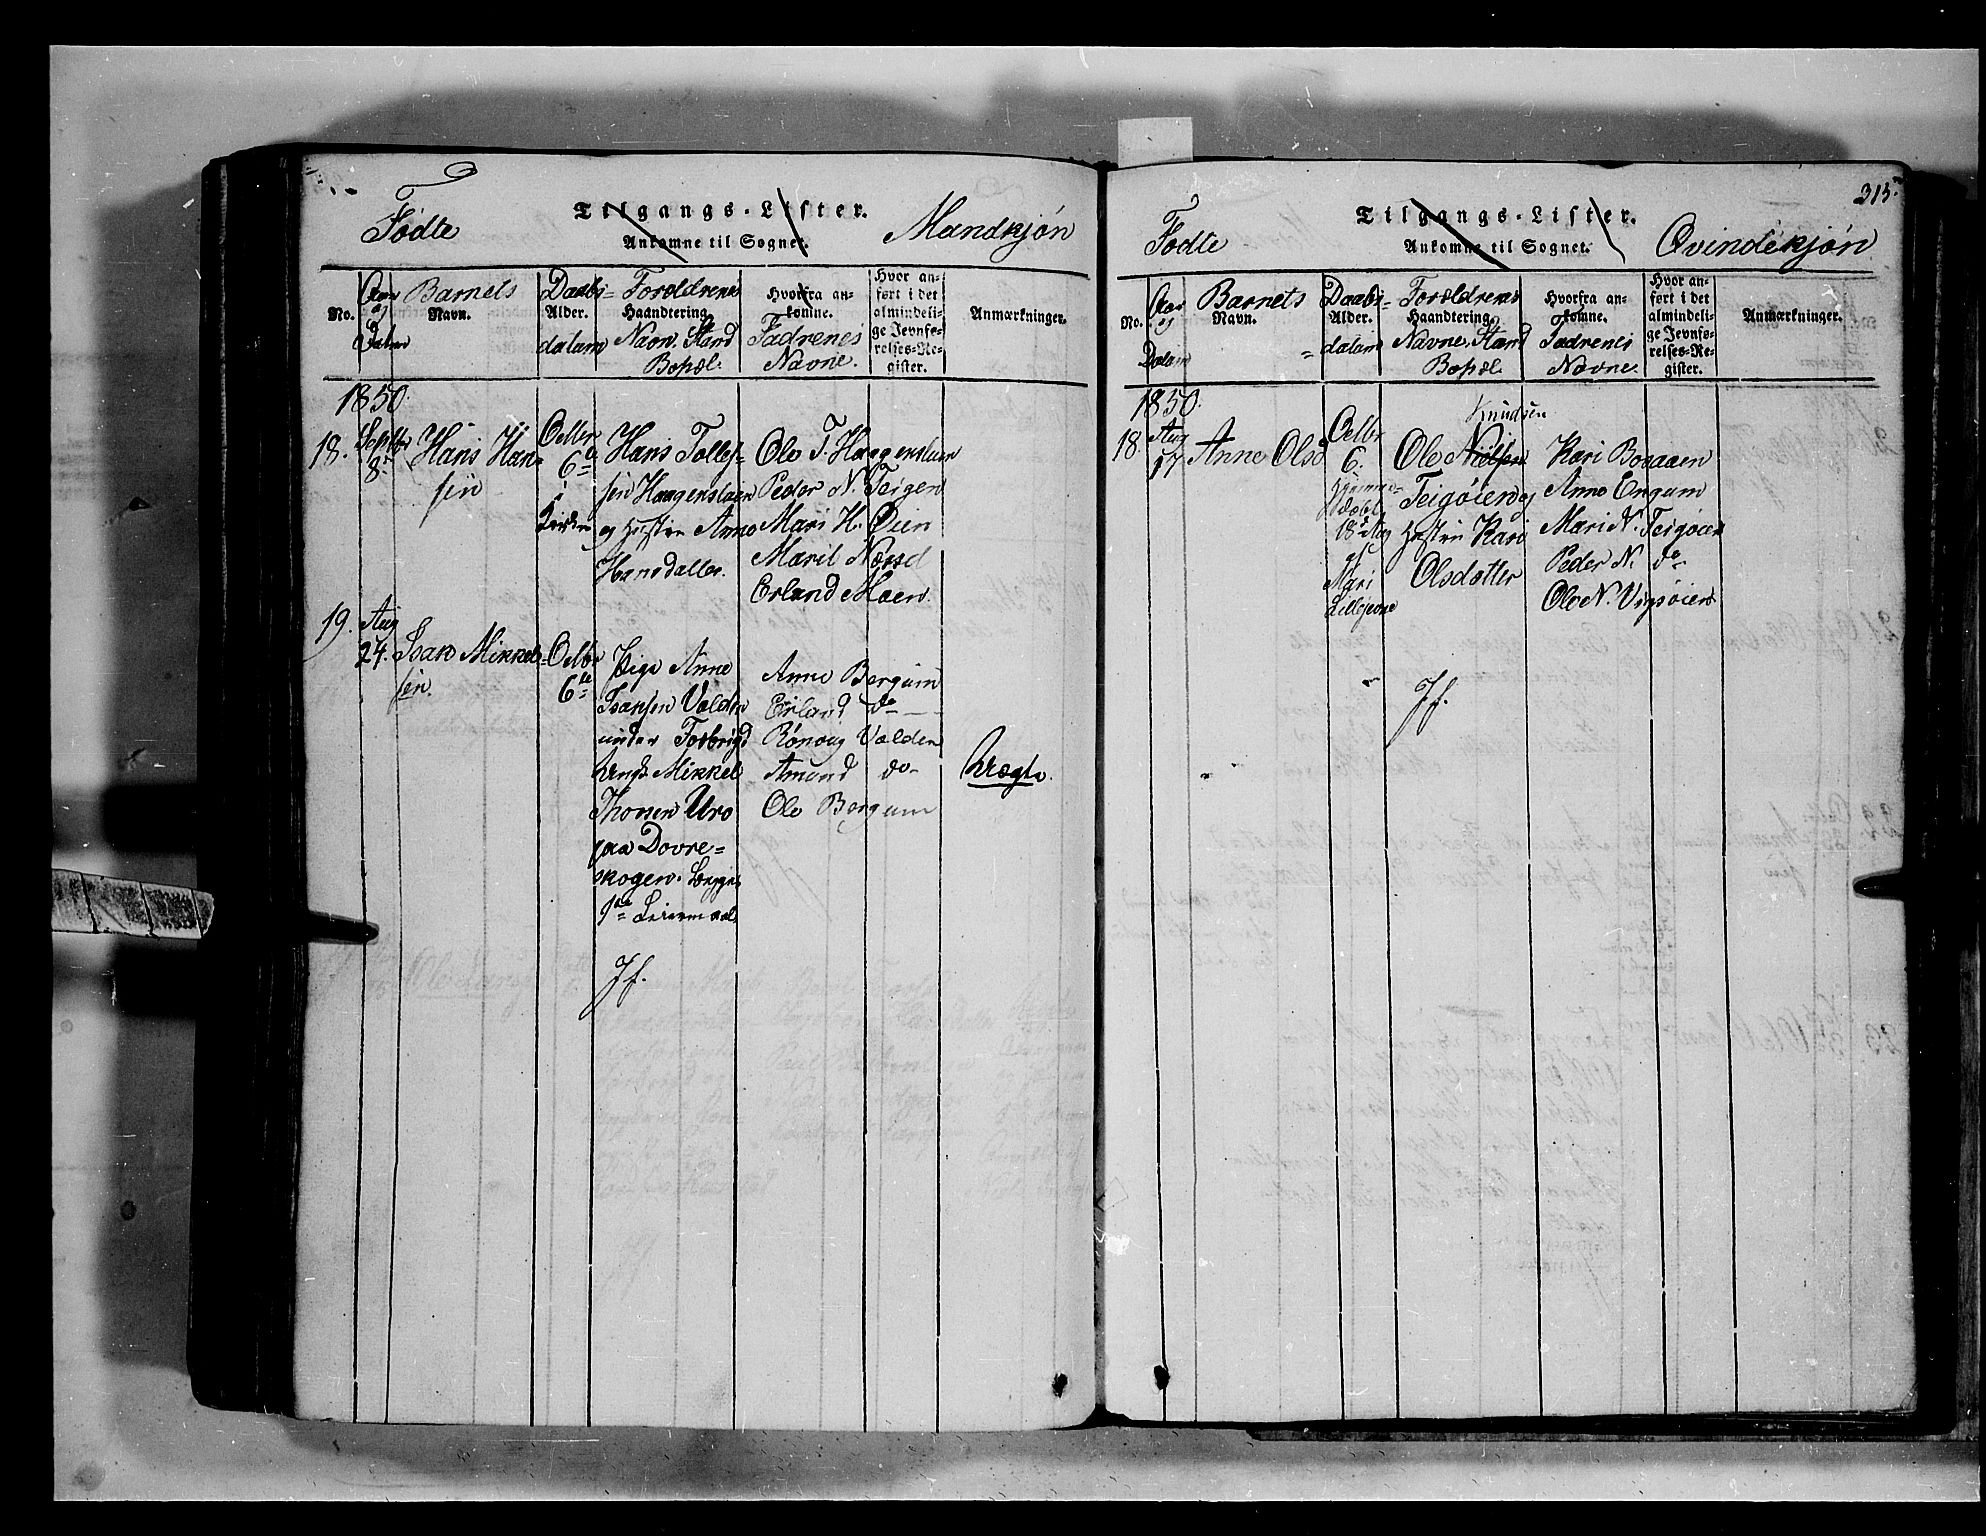 Tilgangs-Lister.
Ankomne til Sognet.
Fødte
Mandkjøn
No.
Aar og Datum
Barnets
Navn.
Daabs=
Alder.
datum
Forældrenes
Haandtering.
Navn, Stand
Bopæl.
Hvorfra an-
komne.
Fadrenes
Navne.
Hvor an-
ført i det
almindeli-
ge Jevnfø-
relses-Re-
gister.
Anmærkninger.
1850.
18.
Septbr
8de
Hans Han-
sen
Octbr
6te
i
Kirken
Hans Tolles-
sen Haagenstaen
og Hustru Anne
Hansdatter.
Ole T. Haagenstaen
Peder N. Teigen
Mari H. Øien
Marit Næssd
Erland Moen.
19.
Aug
24.
Isak Mikkel-
sen.
Octbr
6te
Pige Anne
Isaksen Valden
under Tofte
Ungk Mikkel
Thoesen Uro
paa Dovre-
skogen. Begges
1ste Leiermaal
Anne Bergum
Erland do
Rønnoug Valden
Amund do
Ole Bergum
Uægte.
Jf.
315.
Tilgangs-Lister.
Ankomne til Sognet.
Fødte
Qvindekjøn
No.
Aar og
Datum
Barnets
Navn.
Daabs=
Alder.
datum
Forældrenes
Haandtering.
Navne, Stand
Bopæl.
Hvorfra an-
komne.
Fadrenes
Navne.
Hvor an-
ført i det
almindeli-
ge Jevnfø-
relses-Re-
gister.
Anmærkninger.
1850.
18
Aug
17
Anne Olsd
Octbr
6.
Hjemme-
døbt
18de Aug
af
Mari
Knudsen
Ole Nielsen
Teigøien og
Hustru Kari
Olsdatter
Kari Bogaaen
Anne Engum
Mari N. Teigøien
Peder N. do
Ole N. Vigsøien
Jf.